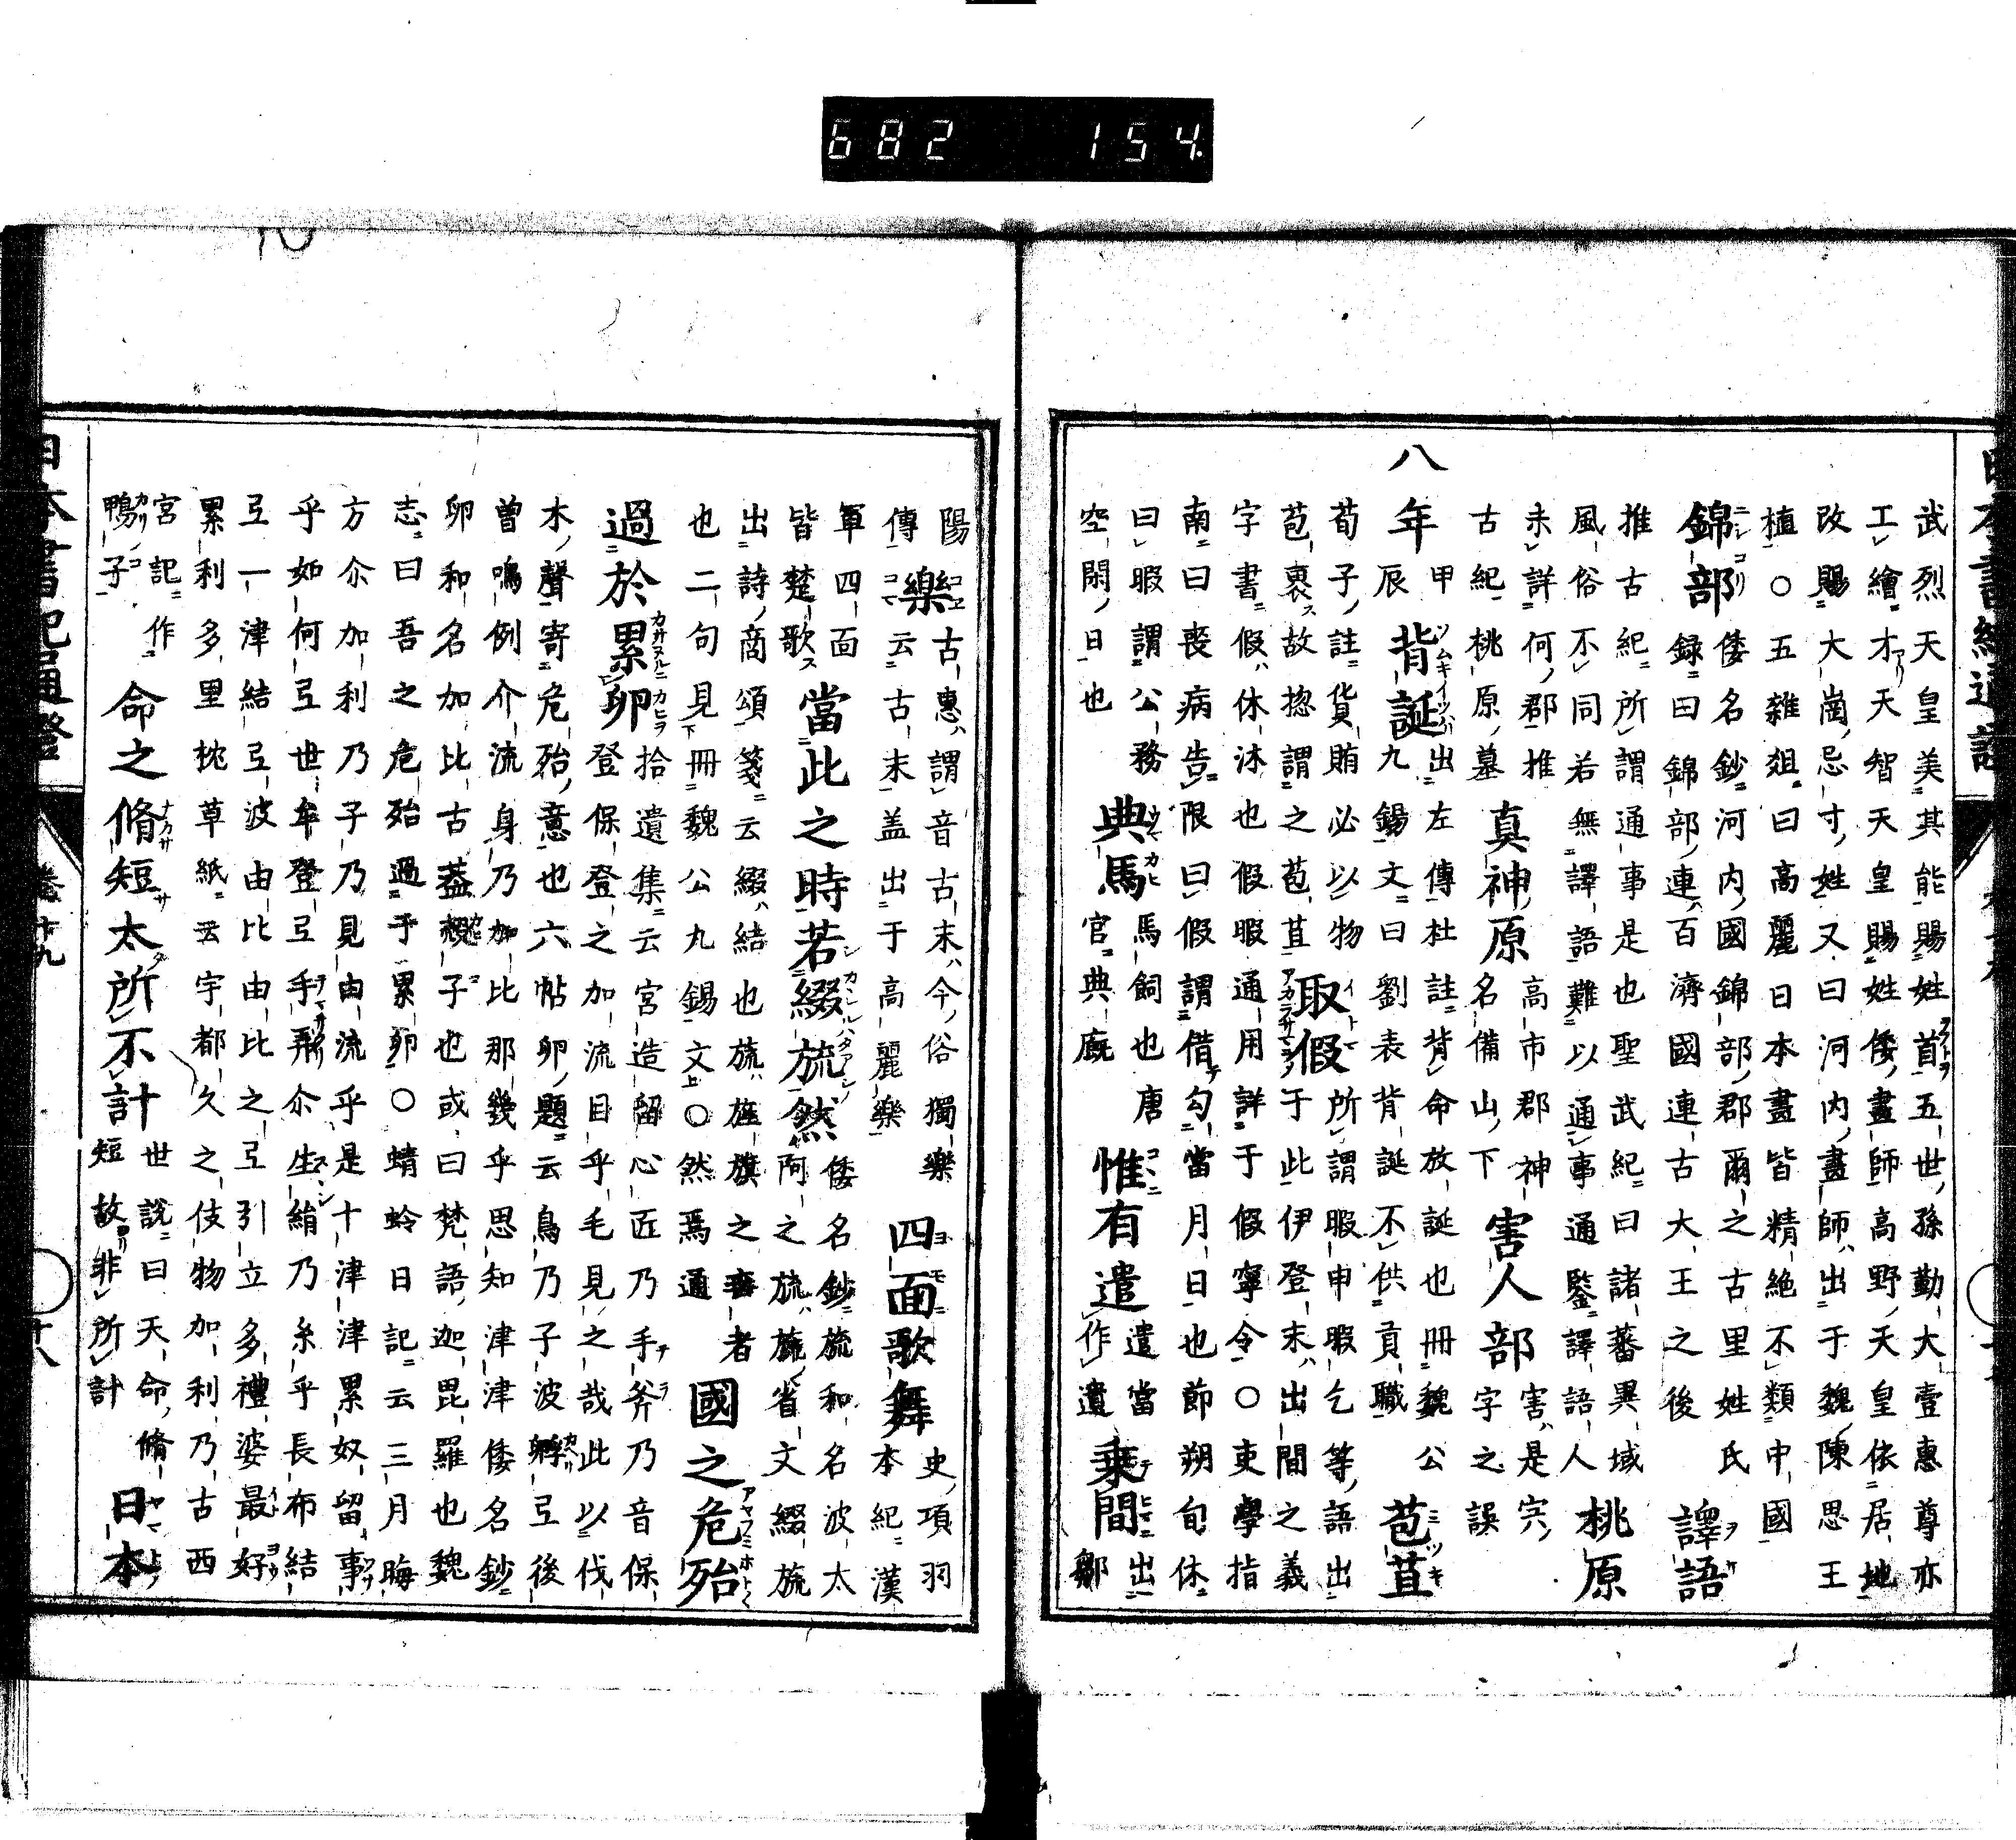 682 154
武烈天皇美其能賜姓首五世孫勤大壹惠尊亦
工繪才天智天皇賜姓倭畫師高野天皇依居地
改賜大崗忌寸姓又曰河内畫師出于魏陳思王
植○五雜爼曰高麗日本畫皆精絶不類中國
錦部
倭名鈔河内國錦部郡爾之古里姓氏
録曰錦部連百濟國連古大王之後
譯語
推古紀所謂通事是也聖武紀曰諸蕃異域
風俗不同若無譯語難以通事通鑒譯語人
桃原
未詳何郡推
古紀桃原墓
真神原
高市郡神
名備山下
害人部
害是宍
字之誤
八年
甲
辰
背誕
出左傳杜註背命放誕也冊魏公
九錫文曰劉表背誕不供貢職
苞苴
荀子註貨賄必以物
苞裹故揔謂之苞苴
取假
所謂暇申暇乞等語出
于此伊登末出間之義
字書假休沐也假暇通用詳于假寧令○吏學指
南曰喪病告限曰假謂借勾當月日也節朔旬休
曰暇謂公務
空閑日也
典馬
馬飼也唐
官典廐
惟有遣
遣當
作遺
乗間
出鄒
陽
傳
樂
古惠謂音古末今俗獨樂
云古末盖出于高麗樂
四面歌舞
史項羽
本紀漢
軍四面
皆楚歌
當此之時若綴旒然
倭名鈔旒和名波太
阿之旒旒省文綴旒
出詩商頌箋云綴結也旒旌旗之垂者
也二句見冊魏公九錫文○然焉通
國之危殆
過於累卵
拾遺集云宮造留心匠乃手斧乃音保
登保登之加流目乎毛見之哉此以伐
木聲寄危殆意也六帖卵題云鳥乃子波孵弖後
曽鳴例介流身乃加比那幾乎思知津津倭名鈔
卵和名加比古葢子也或曰梵語迦毘羅也魏
志曰吾之危殆過于累卵○蜻蛉日記云三月晦
方尒加利乃子乃見由流乎是十津津累奴留事
乎如何弖世牟登弖手弄尒生絹乃糸乎長布結
弖一津結弖波由比由比之弖引立多禮婆最好
累利多里枕草紙云宇都久之伎物加利乃古西
宮記作
鴨子
命之脩短太所不計
世説曰天命脩
短故非所計
日本
日本書紀通證
卷十九
十八